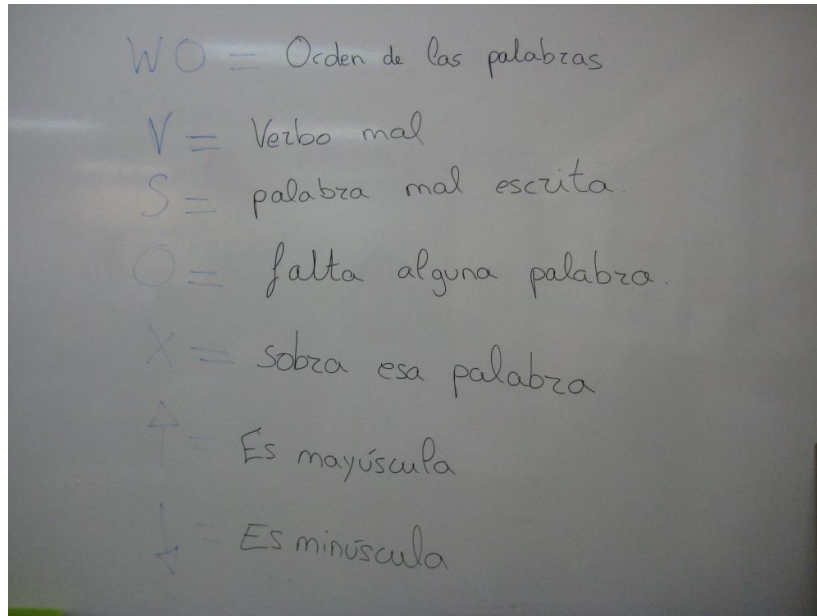 WO = Orden de las palabras
V = Verbo mal
S = palabra mal escrita.
O = falta alguna palabra.
X = sobra esa palabra
↑ = Es mayúscula
↓ = Es minúscula